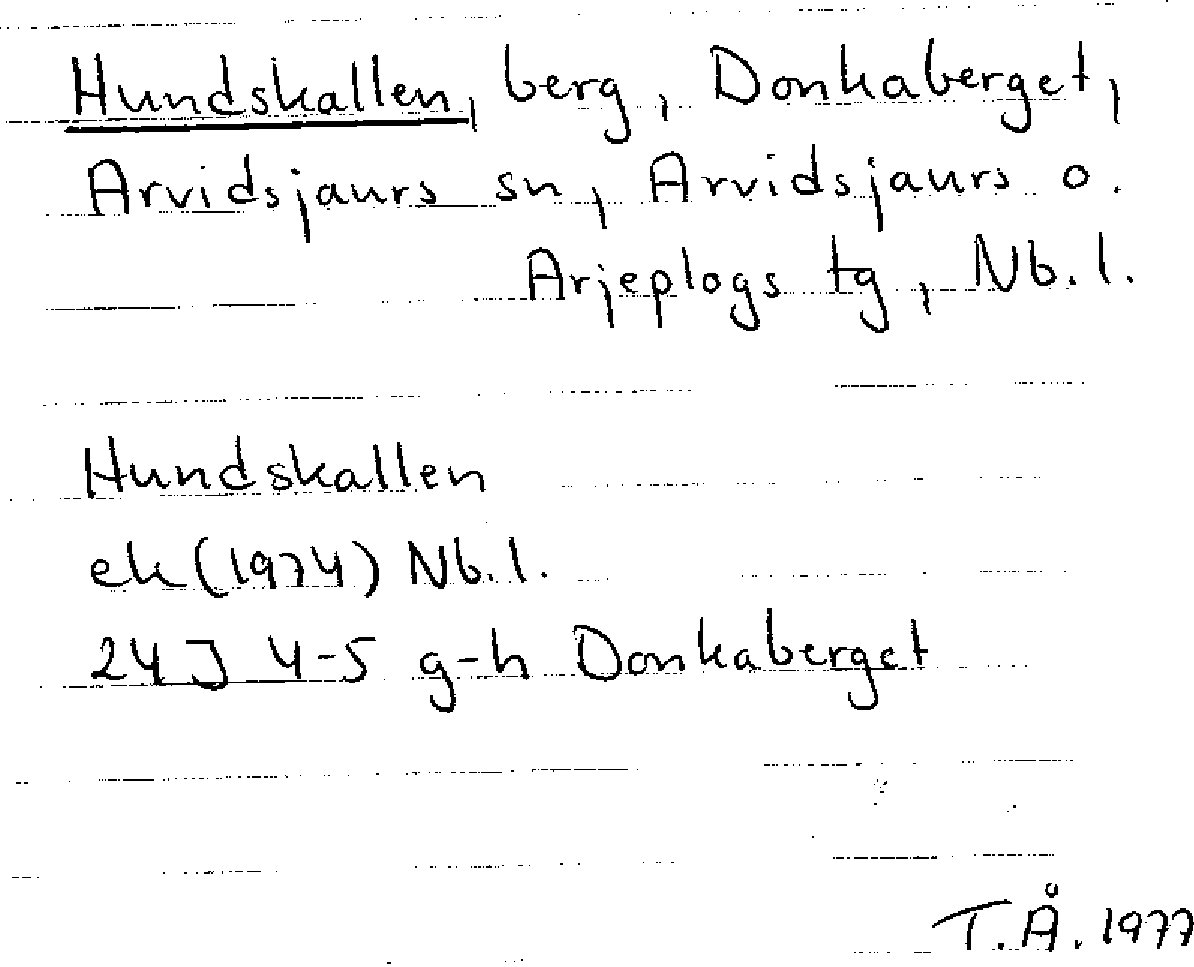 Hundskallen, berg, Donkaberget,
Arvidsjaurs sn, Arvidsjaurs o.
Arjeplogs tg, Nb.l.
Hundskallen
ek (1974) Nb.l.
24J 4-5 g-h Donkaberget
T.Å. 1977